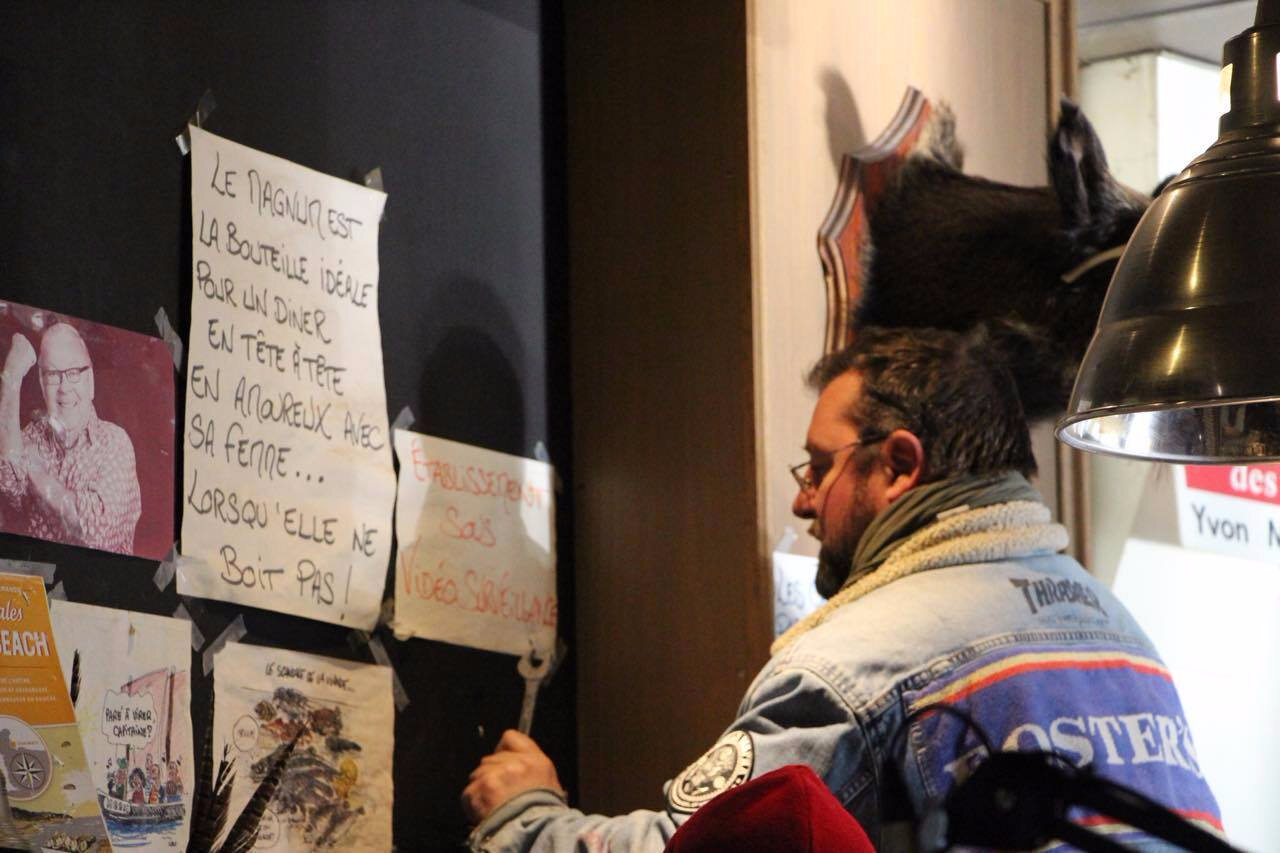 LE MAGNUM EST
LA BOUTEILLE IDÉALE
POUR UN DINER
EN TÊTE À TÊTE
EN AMOUREUX AVEC
SA FEMME...
LORSQU'ELLE NE
BOIT PAS!
ÉTABLISSEMENT
SOUS
VIDÉO SURVEILLANCE
ales
BEACH
PARÉ À VIRER,
CAPITAINE?
LE SONDAGE DE LA SEMAINE...
LES
THRASHER
FOSTER'S
des
Yvon